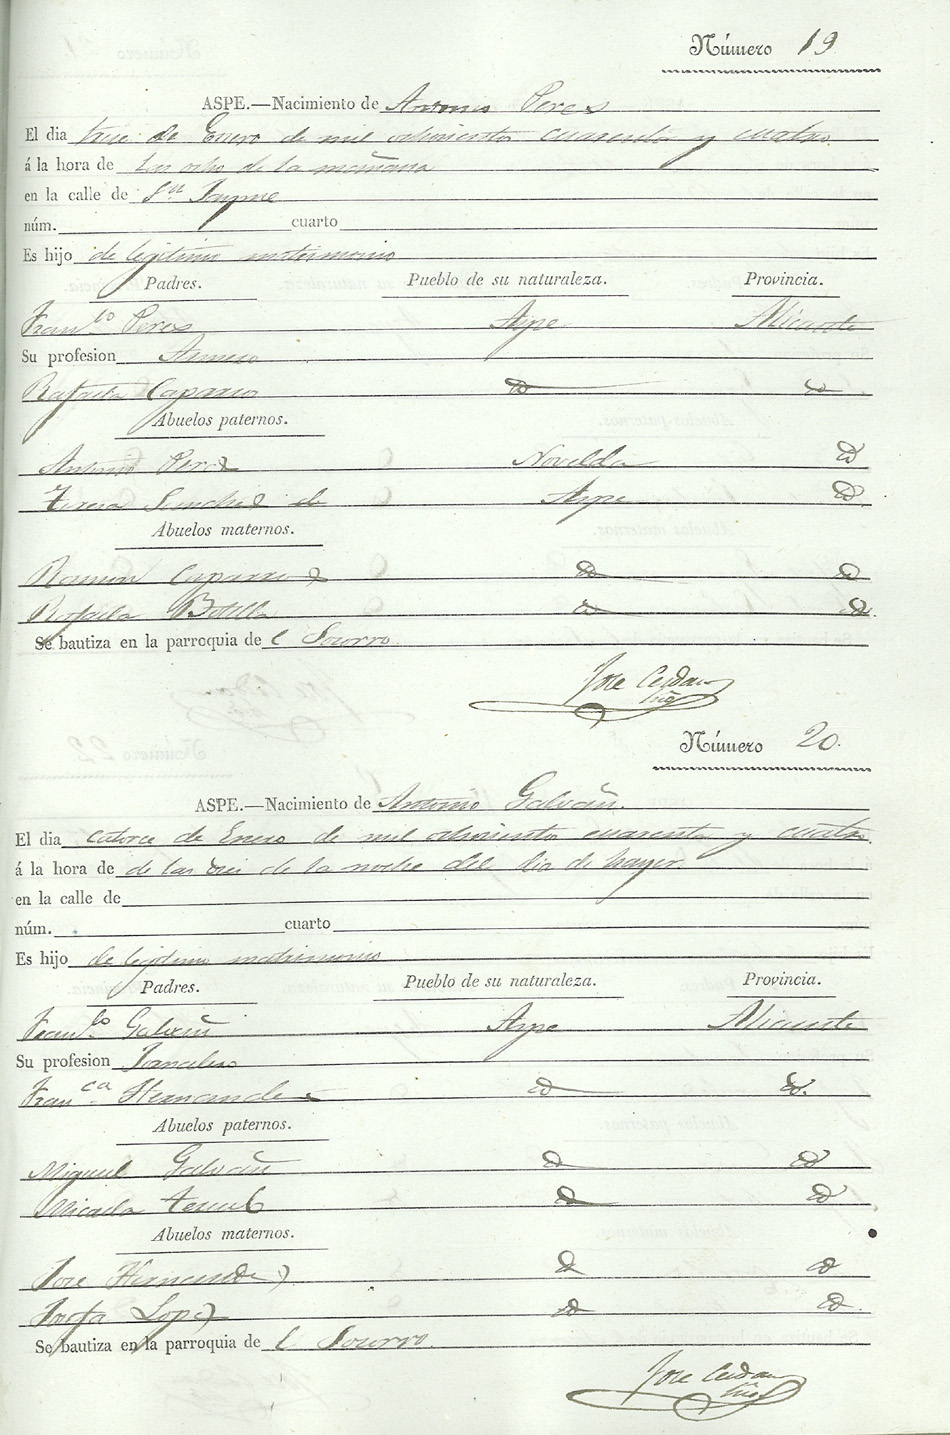 Número 19
ASPE.—Nacimiento de Antonio Peres
El dia trece de Enero de mil ochocientos cuarenta y cuatro
á la hora de las ocho de la mañana
en la calle de Sn Jayme
núm. cuarto
Es hijo de legitimo matrimonio
Padres. Pueblo de su naturaleza. Provincia.
Franco Peres Aspe Alicante
Su profesion
Rafaela Caparros id id
Abuelos paternos.
Antonio Peres Novelda id
Teresa Sanches de Aspe id
Abuelos maternos.
Ramon Caparros id id
Rafaela Botella id id
Se bautiza en la parroquia de l Socorro
Jose Cerdan
Número 20.
ASPE.—Nacimiento de Antonio Galvañ.
El dia catorce de Enero de mil ochociento cuarenta y cuatro
á la hora de de las dies de la noche del dia de hayer.
en la calle de
núm. cuarto
Es hijo de legitimo matrimonio
Padres. Pueblo de su naturaleza. Provincia.
Franco Galvañ Aspe Alicante
Su profesion Jornalero
Franca Hernandes id id
Abuelos paternos.
Miguel Galvañ id id
Micaela Teruel id id
Abuelos maternos.
Jose Hernandez id id
Josefa Lopez id id
Se bautiza en la parroquia de l Socorro.
Jose Cerdan